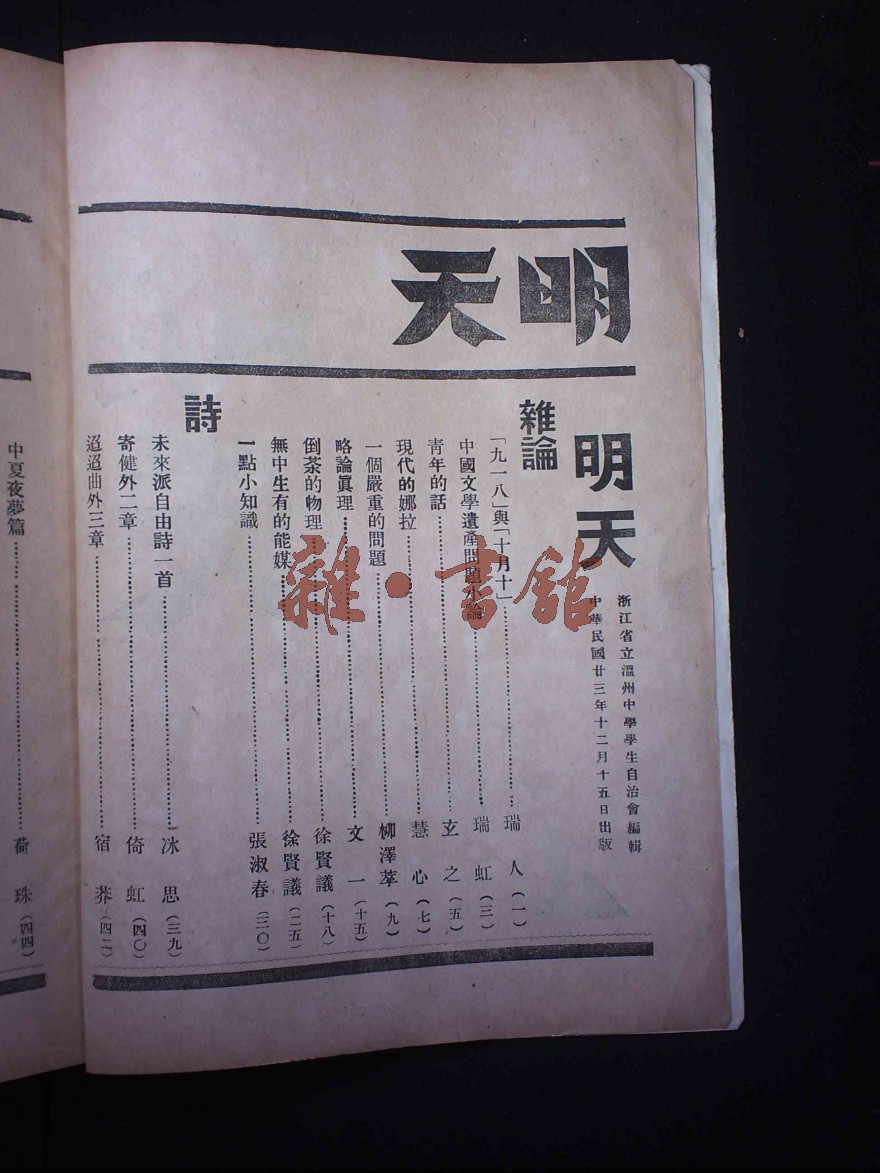 明天
明天
浙江省立溫州中學學生自治會編輯
中華民國廿三年十二月十五日出版
雜論
「九一八」與「十月十」……瑞人(一)
中國文學遺產問題小論……瑞虹(三)
靑年的話……玄之(五)
現代的娜拉……慧心(七)
一個嚴重的問題……柳澤萃(九)
略論眞理……文一(十五)
倒茶的物理……徐賢議(十八)
無中生有的能媒……徐賢議(二五)
一點小知識……張淑春(三〇)
詩
未來派自由詩一首……冰思(三九)
寄健外二章……倚虹(四〇)
迢迢曲外三章……宿莽(四二)
中夏夜夢篇……喬珠(四四)
雜·書館